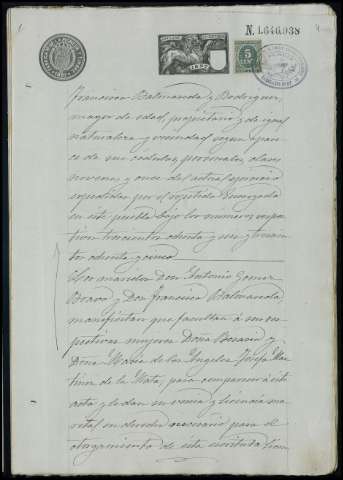 N. 1.646,938
1897
5
Francisco Balmaseda y Rodriguez,
mayor de edad, propietario y de igual
naturaleza y vecindad segun apare-
ce de sus cédulas personales clases
novena y once del actual ejercicio
espedidas por el repetido Encargado
en este pueblo bajo los numeros respec-
tivos trescientos ochenta y uno y trescien-
tos ochenta y cinco
Los maridos Don Antonio Gomez
Bravo y Don Francisco Balmaseda
manifiestan que facultan á sus res-
pectivas mujeres Doña Benacia y
Doña Maria de los Angeles Josefa Mar-
tinez de la Mata, para comparecer á este
acto y le dan su venia y licencia ma-
rital en derecho necesaria para el
otorgamiento de esta escritura